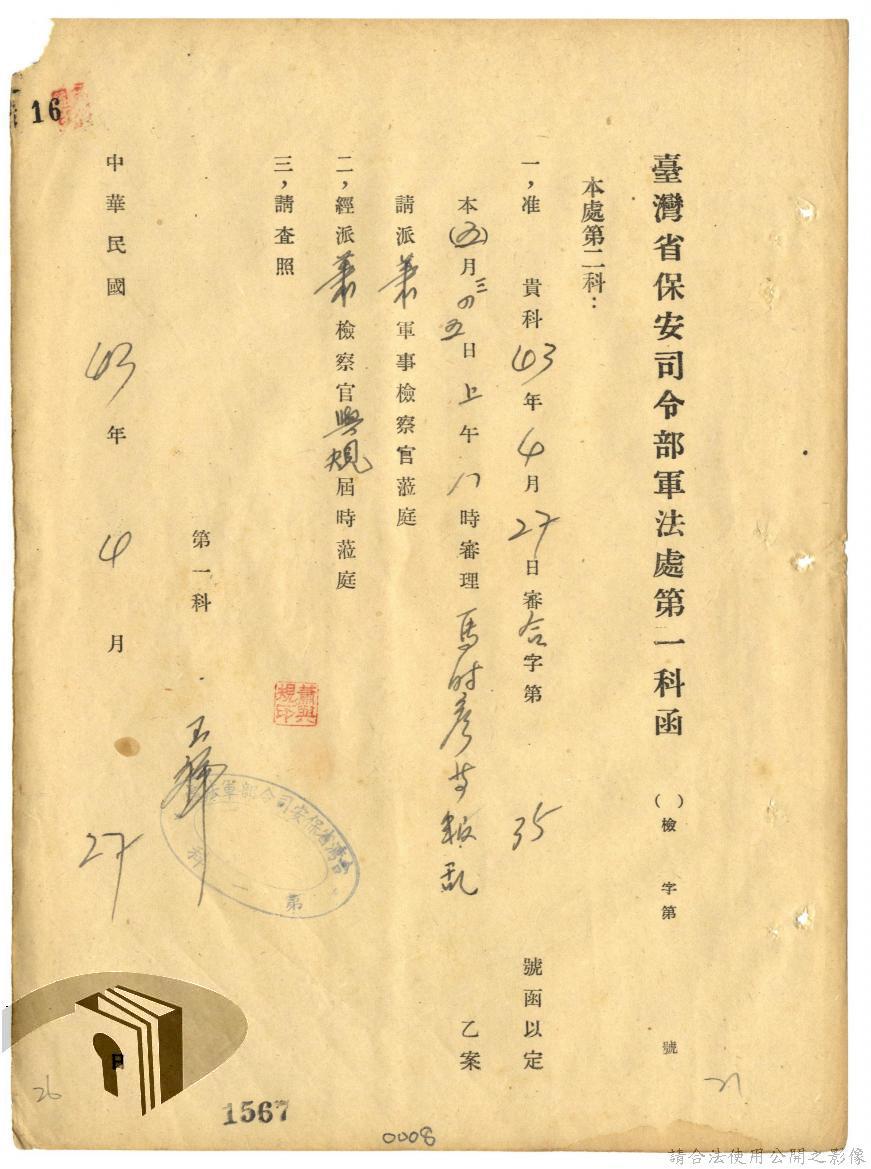 臺灣省保安司令部軍法處第一科函
( )檢 字第 號
本處第二科：
一，准 貴科43年4月27日審合字第 35 號函以定
本(五)月三四五日上午八時審理馬時彥等叛乱 乙案
請派蕭軍事檢察官蒞庭
二，經派蕭檢察官與規屆時蒞庭
三，請查照
第一科
蕭興規印
臺灣省保安司令部軍法處
第一科
中華民國43年4月27日
16
1567
0008
26
21
請合法使用公開之影像